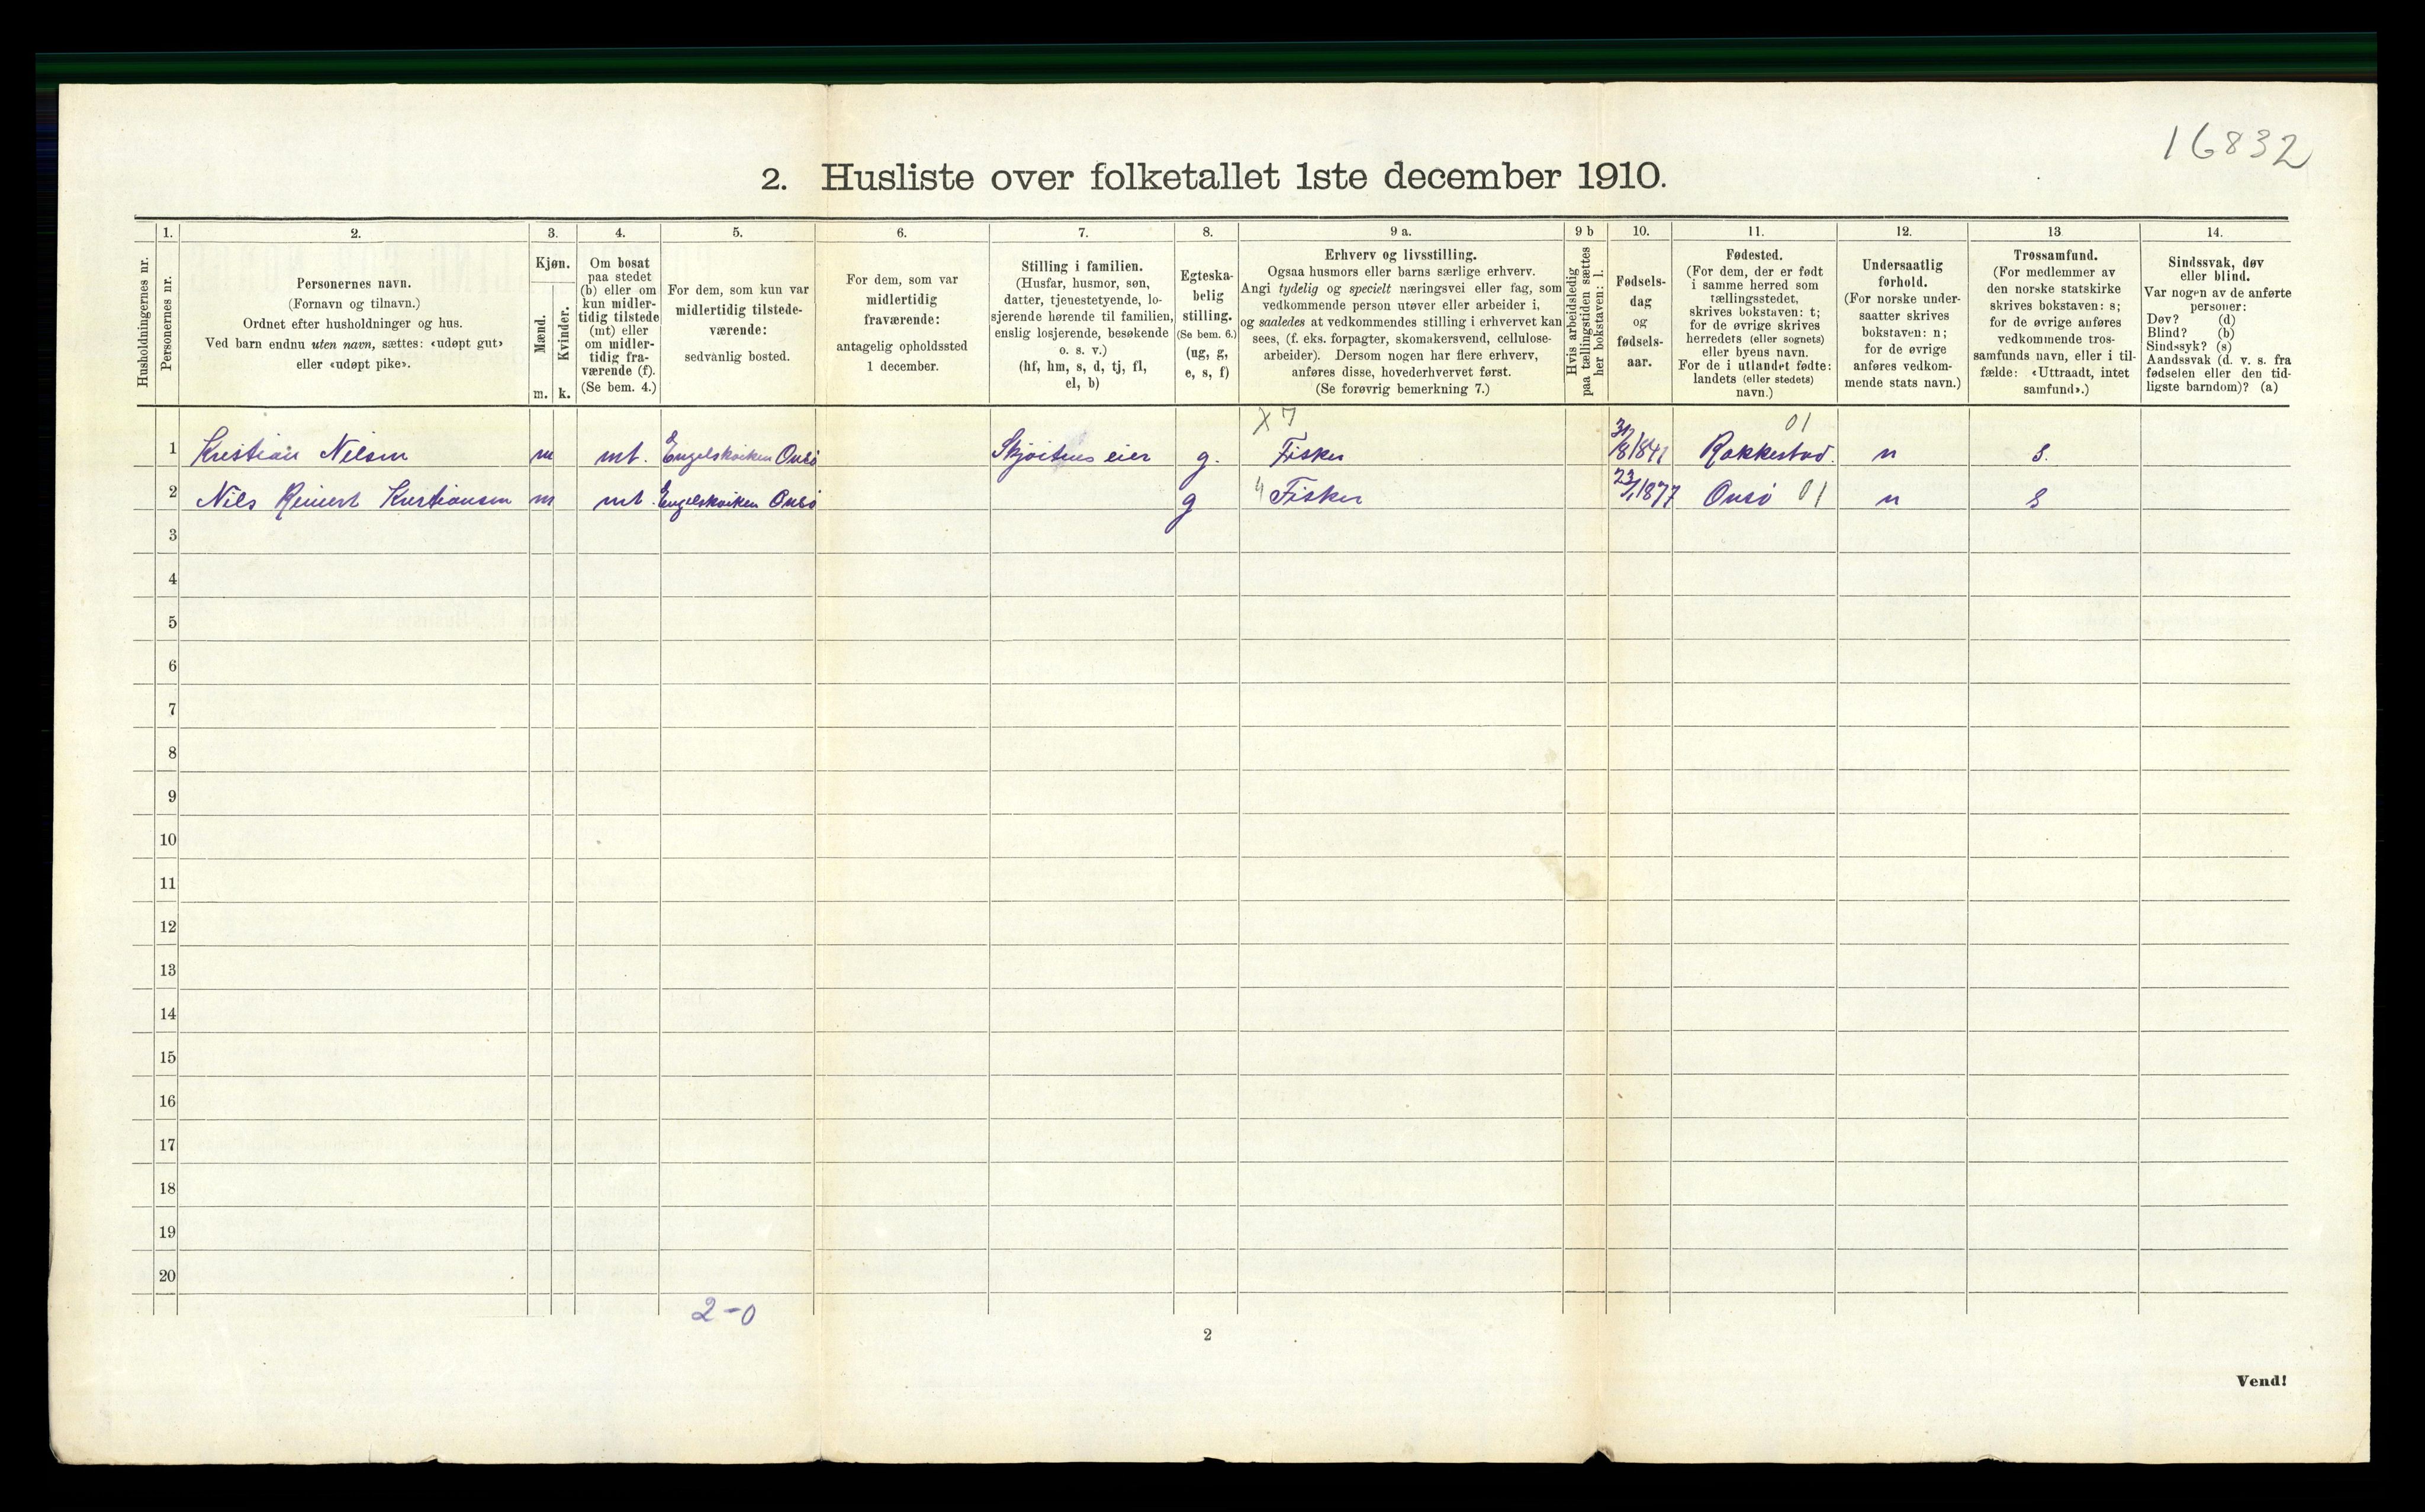 16832
2. Husliste over folketallet 1ste december 1910.
Husholdningernes nr.
1.
Personernes nr.
2.
Personernes navn.
(Fornavn og tilnavn.)
Ordnet efter husholdninger og hus.
Ved barn endnu uten navn, sættes: «udøpt gut»
eller «udøpt pike».
3.
Kjøn.
Mænd.
Kvinder.
m. k.
4.
Om bosat
paa stedet
(b) eller om
kun midler-
tidig tilstede
(mt) eller
om midler-
tidig fra-
værende (f).
(Se bem. 4.)
5.
For dem, som kun var
midlertidig tilstede-
værende:
sedvanlig bosted.
6.
For dem, som var
midlertidig
fraværende:
antagelig opholdssted
1 december.
7.
Stilling i familien.
(Husfar, husmor, søn,
datter, tjenestetyende, lo-
sjerende hørende til familien,
enslig losjerende, besøkende
o. s. v.)
(hf, hm, s, d, tj, fl,
el, b)
8.
Egteska-
belig
stilling.
(Se bem. 6.)
(ug, g,
e, s, f)
9 a.
Erhverv og livsstilling.
Ogsaa husmors eller barns særlige erhverv.
Angi tydelig og specielt næringsvei eller fag, som
vedkommende person utøver eller arbeider i,
og saaledes at vedkommendes stilling i erhvervet kan
sees, (f. eks. forpagter, skomakersvend, cellulose-
arbeider). Dersom nogen har flere erhverv,
anføres disse, hovederhvervet først.
(Se forøvrig bemerkning 7.)
9 b
Hvis arbeidsledig
paa tællingstiden sættes
her bokstaven: l.
10.
Fødsels-
dag
og
fødsels-
aar.
11.
Fødested.
(For dem, der er født
i samme herred som
tællingsstedet,
skrives bokstaven: t;
for de øvrige skrives
herredets (eller sognets)
eller byens navn.
For de i utlandet fødte:
landets (eller stedets)
navn.)
12.
Undersaatlig
forhold.
(For norske under-
saatter skrives
bokstaven: n;
for de øvrige
anføres vedkom-
mende stats navn.)
13
Trossamfund.
(For medlemmer av
den norske statskirke
skrives bokstaven: s;
for de øvrige anføres
vedkommende tros-
samfunds navn, eller i til-
fælde: «Uttraadt, intet
samfund».)
14.
Sindssvak, døv
eller blind.
Var nogen av de anførte
personer:
Døv? (d)
Blind? (b)
Sindssyk? (s)
Aandssvak (d. v. s. fra
fødselen eller den tid-
ligste barndom)? (a)
X 7 01
1 Kristian Nilsen m mt. Engelskviken Onsö Skjöitens eier g. Fisker 31/8 1841 Rakkestad. n s.
2 Nils Reinert Kristiansen m mt. Engelskviken Onsö g Fisker 23/1 1877 Onsö 01 n s
3
4
5
6
7
8
9
10
11
12
13
14
15
16
17
18
19
20
2-0
2
Vend!